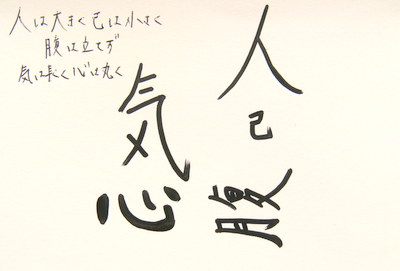 人は大きく己は小さく
腹は立てず
気は長く心は丸く
人己腹
気心